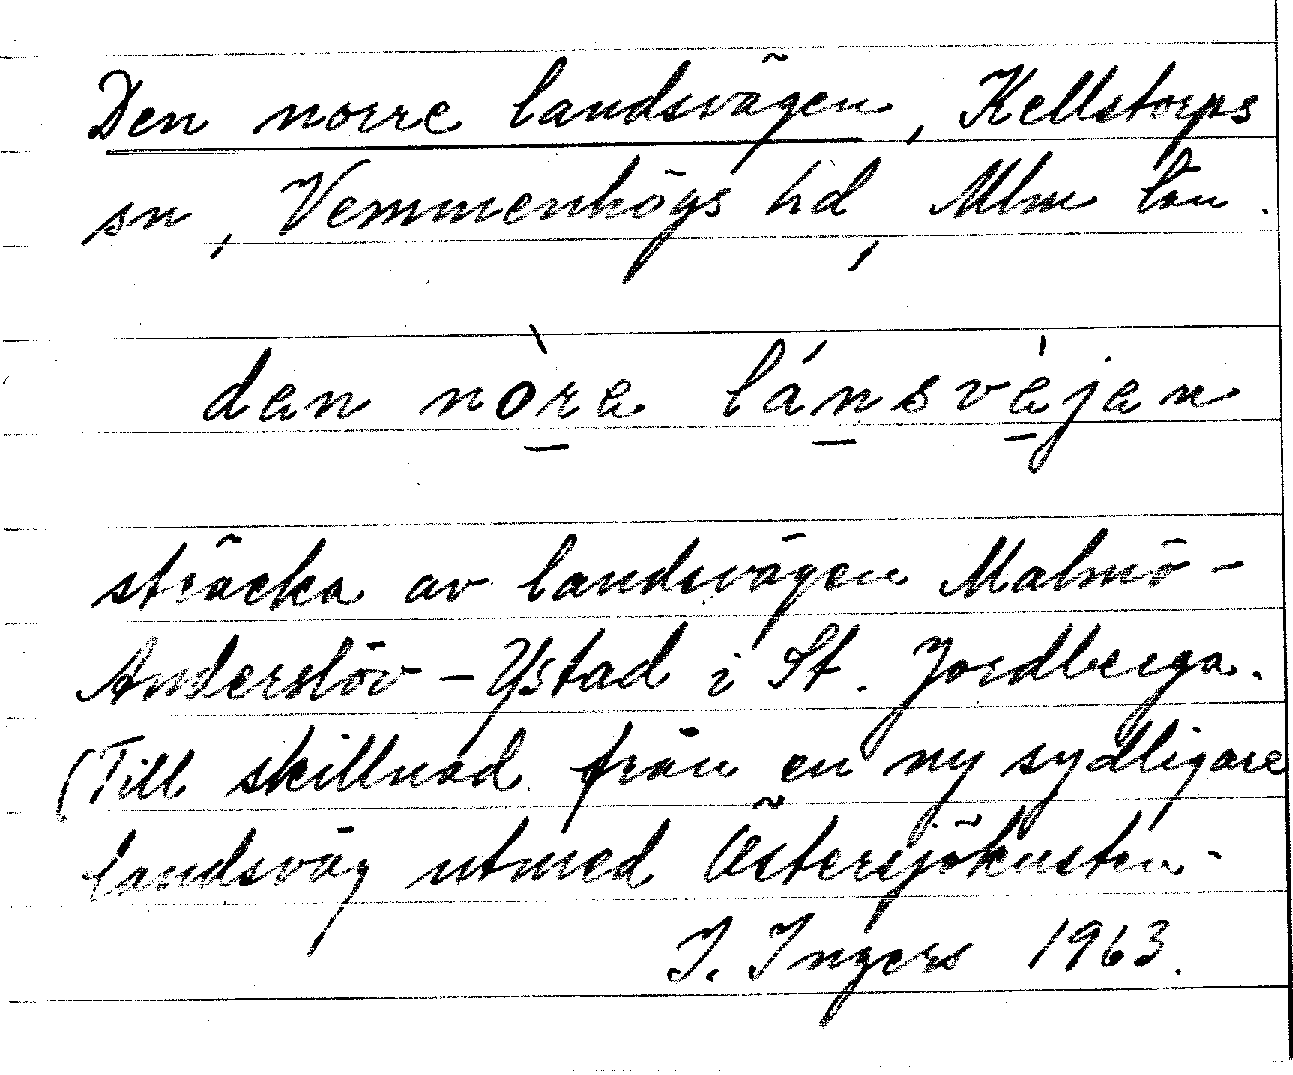 Den norre landsvägen, Kellstorps
sn, Vemmenhögs hd, Mlm län.
dan nòra lánsvàjan
sträcka av landsvägen Malmö-
Anderslöv - Ystad i St. Jordberga.
(Till skillnad från en ny sydligare
landsväg utmed Östersjökusten.
I. Ingers 1963.